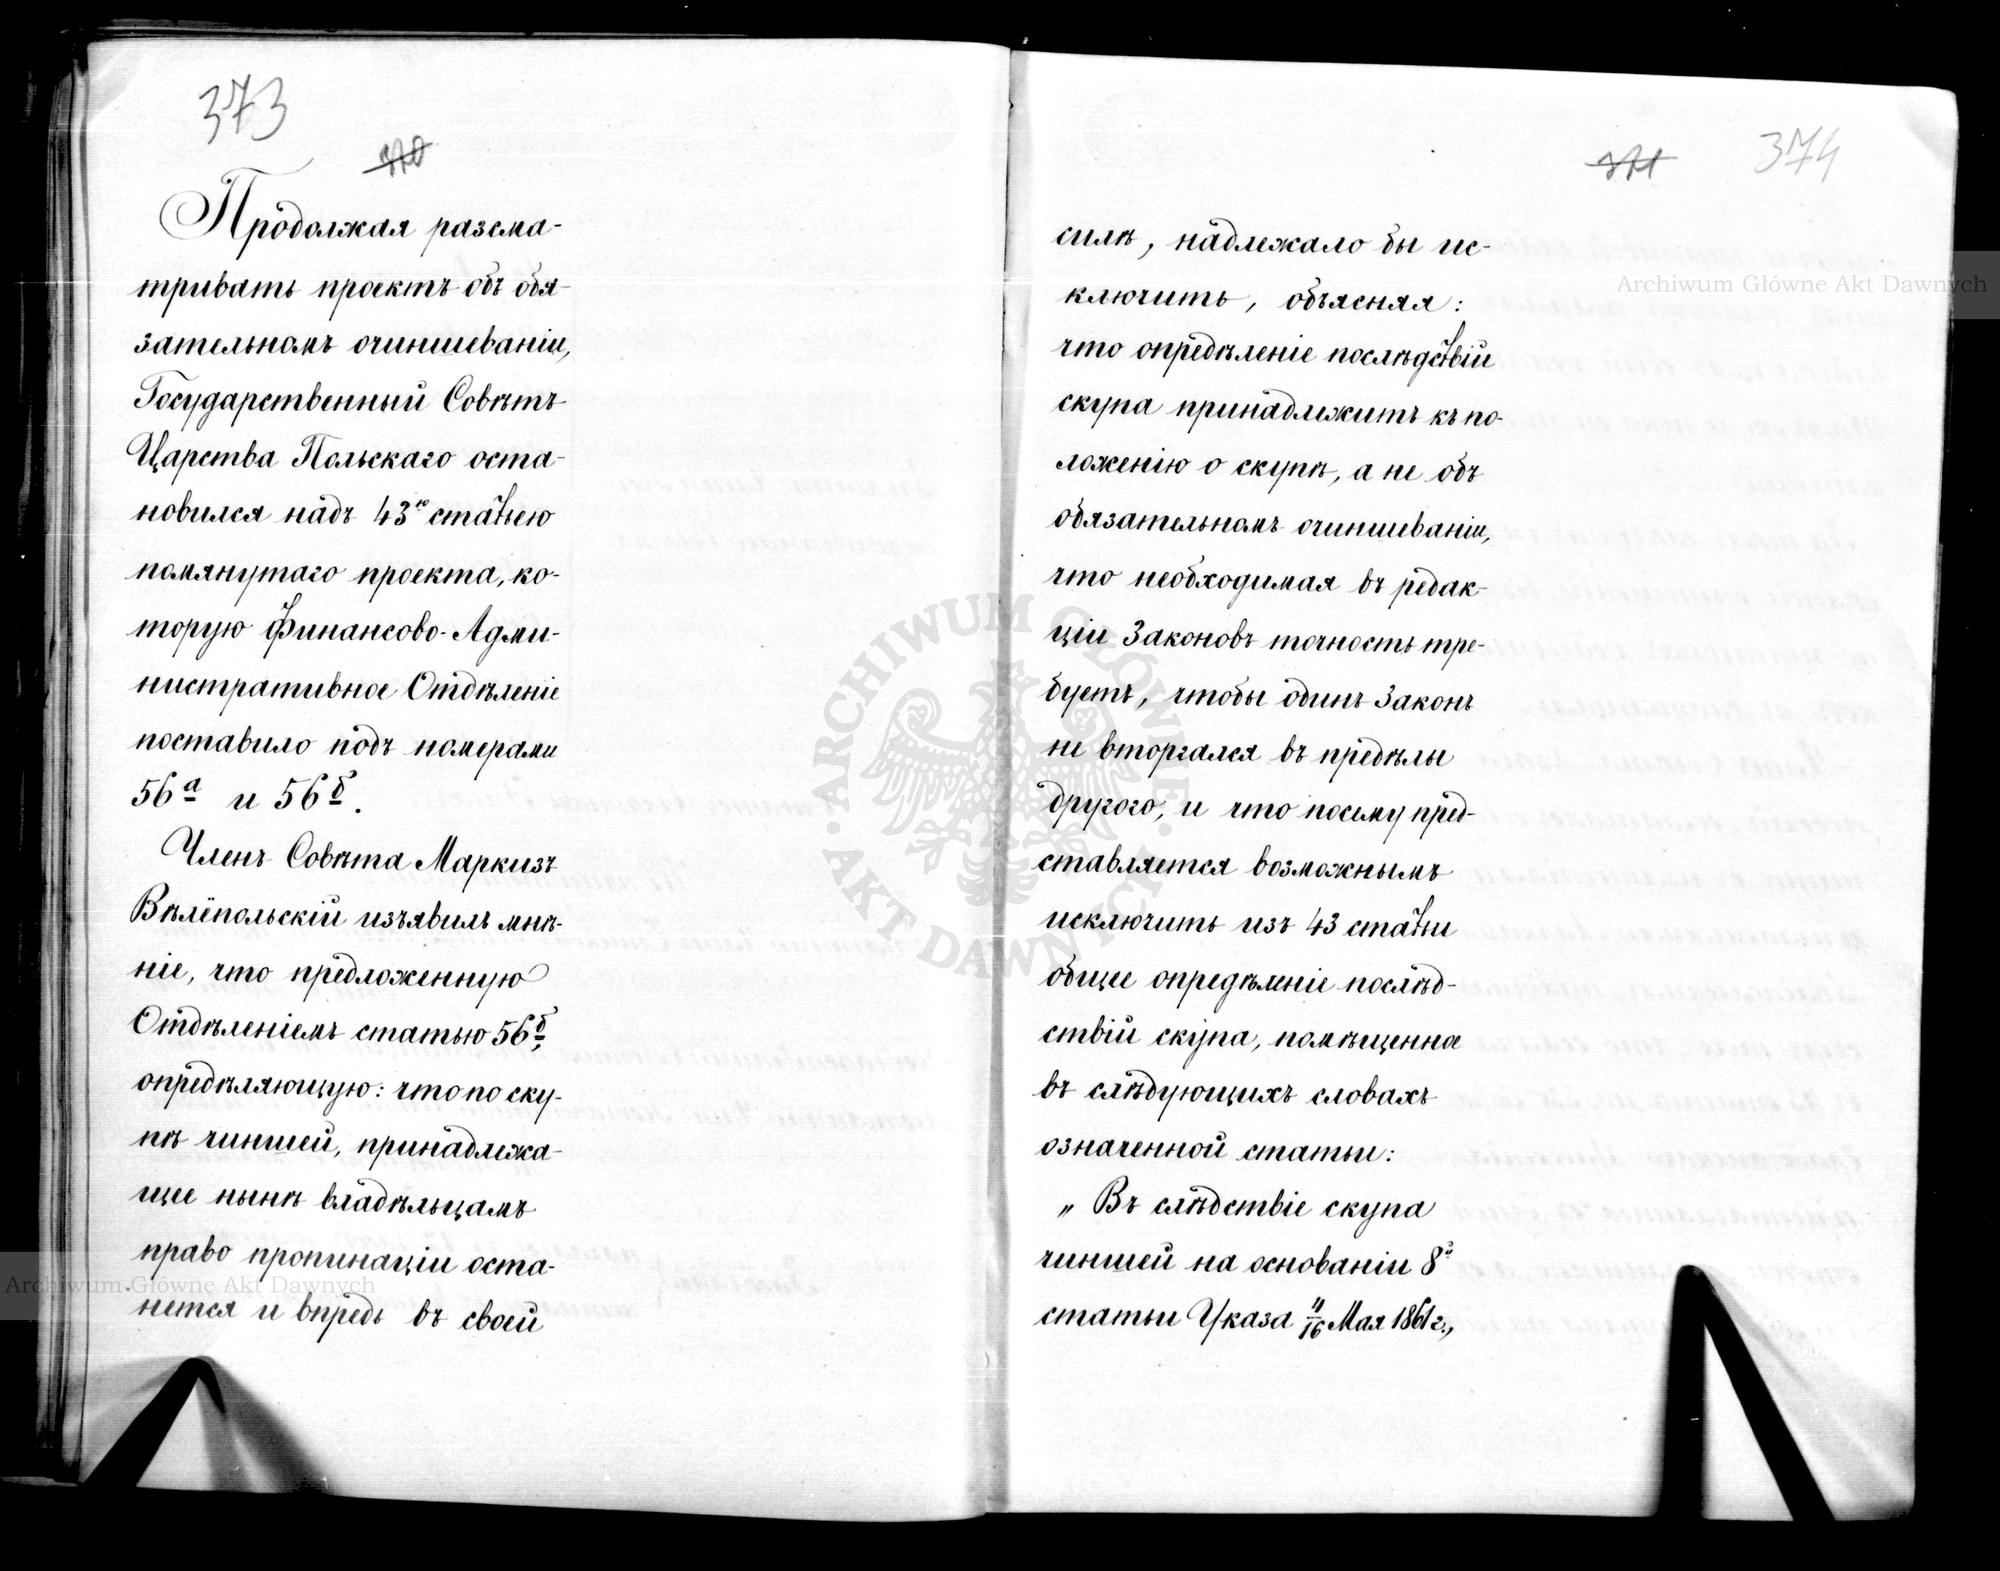 373
370
Продолжая разсма-
тривать проектъ объ обя-
зательномъ очиншеваніи,
Государственный Совѣтъ
Царства Польскаго оста-
новился надъ 43ю статьею
помянутаго проекта, ко-
торую Финансово-Адми-
нистративное Отдѣленіе
поставило подъ номерами
56а и 56б.
Членъ Совѣта Маркизъ
Вѣлёпольскій изъявилъ мнѣ-
ніе, что предложенную
Отдѣленіемъ статью 56б,
опредѣляющую: что по ску-
пѣ чиншей, принадлежа-
щее нынѣ владѣльцамъ
право пропинаціи оста-
нется и впредь въ своей
371
374
силѣ, надлежало бы ис-
ключить, объясняя:
что опредѣленіе послѣдствій
скупа принадлежитъ къ по-
ложенію о скупѣ, а не объ
обязательномъ очиншеваніи,
что необходимая въ редак-
ціи Законовъ точность тре-
буетъ, чтобы одинъ Законъ
не вторгался въ предѣлы
другого, и что посему пред-
ставляется возможнымъ
исключить изъ 43 статьи
общее опредѣленіе послѣд-
ствій скупа, помѣщенное
въ слѣдующихъ словахъ
означенной статьи:
„ Въ слѣдствіе скупа
чиншей на основаніи 8й
статьи Указа 4/16 Мая 1861 г.,
Archiwum Główne Akt Dawnych
Archiwum Główne Akt Dawnych
ARCHIWUM GŁÓWNE · AKT DAWNYCH ·